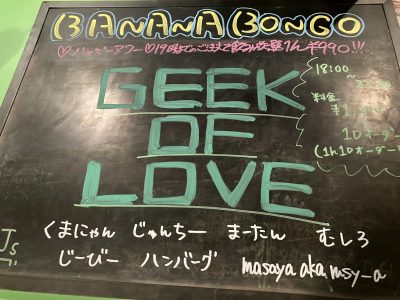 BANANA BONGO
♡ハッピーアワー♡19時までのご注文で飲み放題1h ¥990!!!
GEEK
OF
LOVE
18:00
~
料金
1Dオーダー
(1h1Dオーダー
くまにゃん じゅんちー まーたん むしろ
じーびー ハンバーグ masaya aka msy_a